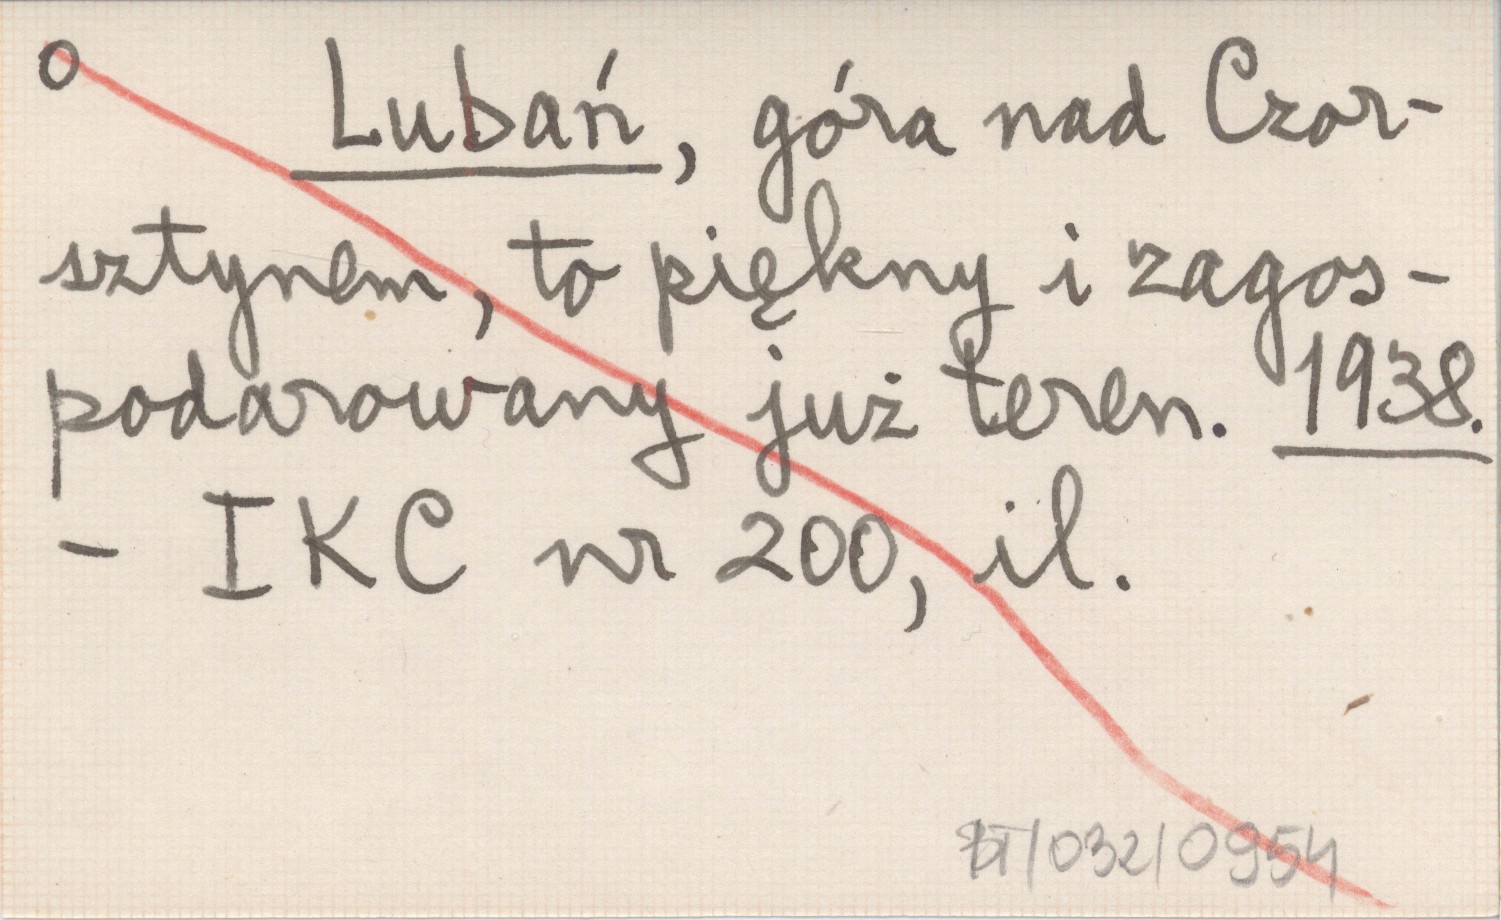 o Lubań, góra nad Czor-
sztynem, to piękny i zagos-
podarowany już teren. 1938.
- IKC nr 200, il.
BT/032/0954